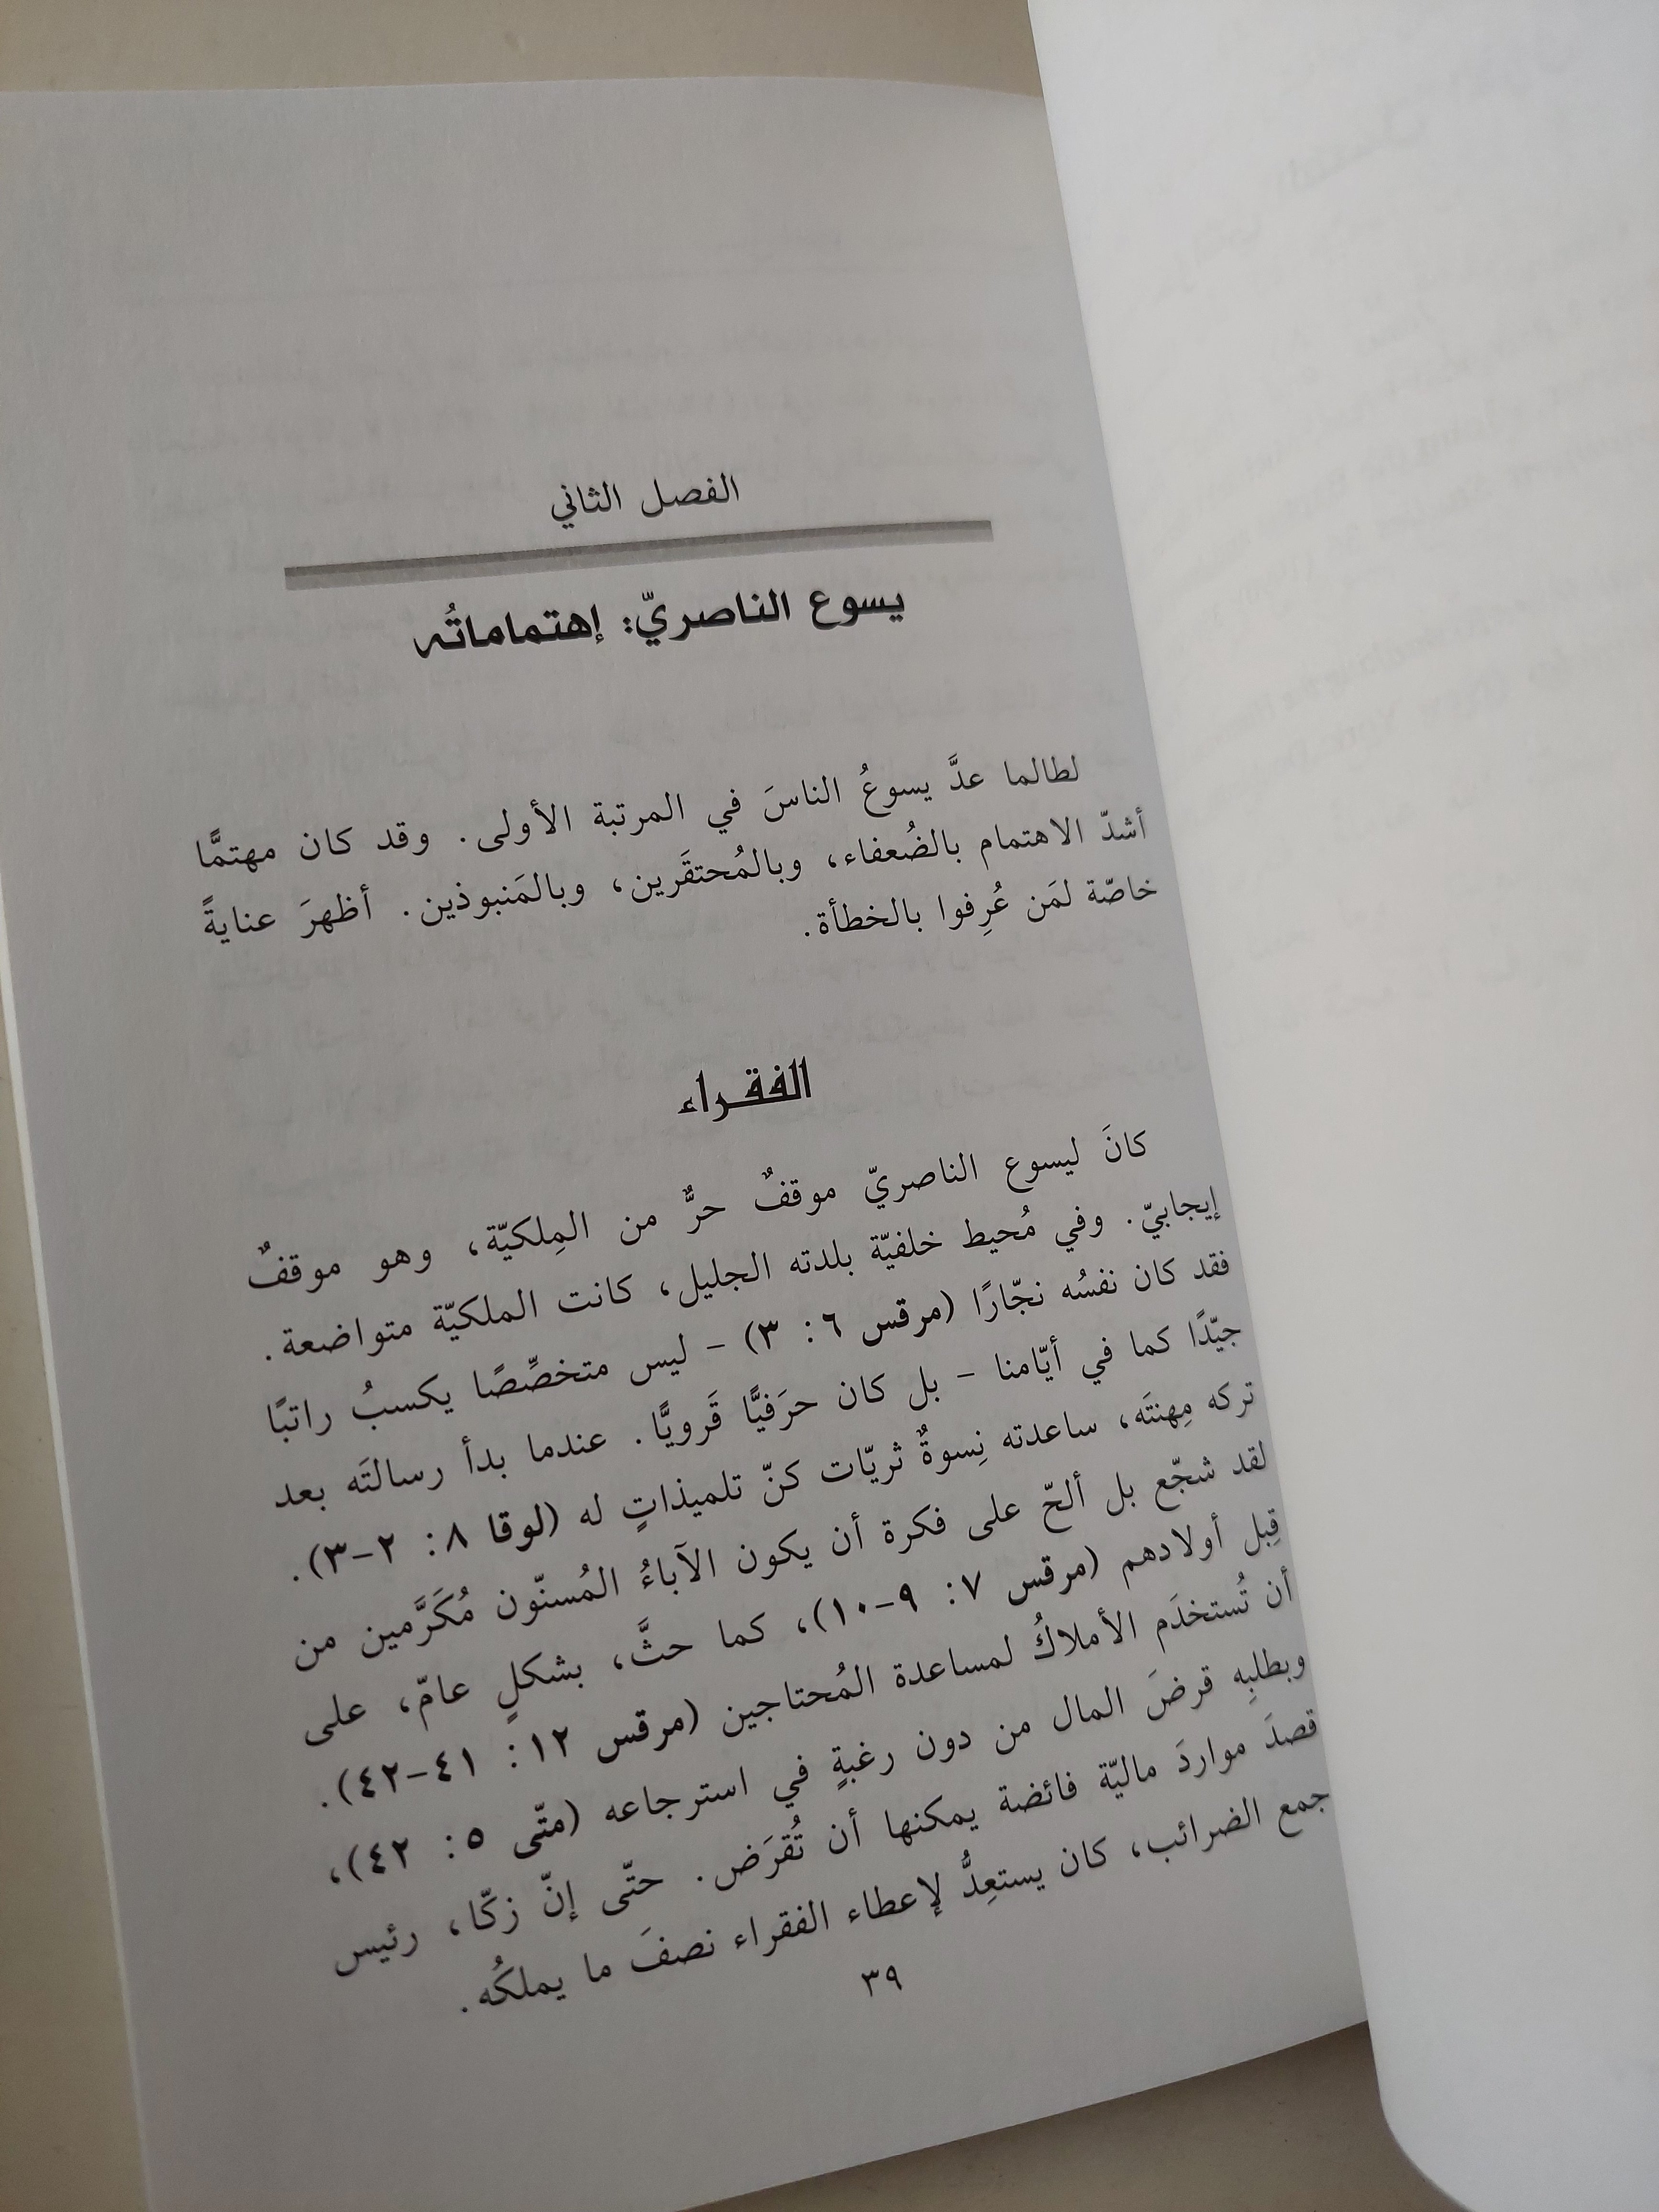 الفصل الثاني
يسوع الناصريّ: إهتماماتُه
لطالما عدَّ يسوعُ الناسَ في المرتبة الأولى. وقد كان مهتمًّا
أشدّ الاهتمام بالضُعفاء، وبالمُحتقَرين، وبالمَنبوذين. أظهرَ عنايةً
خاصّة لمَن عُرِفوا بالخطأة.
الفقراء
كانَ ليسوع الناصريّ موقفٌ حرٌّ من المِلكيّة، وهو موقفٌ
إيجابيّ. وفي مُحيط خلفيّة بلدته الجليل، كانت الملكيّة متواضعة.
فقد كان نفسُه نجّارًا (مرقس ٦: ٣) - ليس متخصِّصًا يكسبُ راتبًا
جيّدًا كما في أيّامنا - بل كان حرَفيًّا قَرويًّا. عندما بدأ رسالتَه بعد
تركه مِهنتَه، ساعدته نِسوةٌ ثريّات كنّ تلميذاتٍ له (لوقا ٨: ٢-٣).
لقد شجّع بل ألحّ على فكرة أن يكون الآباءُ المُسنّون مُكَرَّمين من
قِبل أولادهم (مرقس ٧: ٩-١٠)، كما حثَّ، بشكلٍ عامّ، على
أن تُستخدَم الأملاكُ لمساعدة المُحتاجين (مرقس ١٢: ٤١-٤٢).
وبطلبِه قرضَ المال من دون رغبةٍ في استرجاعه (متّى ٥: ٤٢)،
قصدَ مواردَ ماليّة فائضة يمكنها أن تُقرَض. حتّى إنّ زكّا، رئيس
جمع الضرائب، كان يستعِدُّ لإعطاء الفقراء نصفَ ما يملكُه.
٣٩